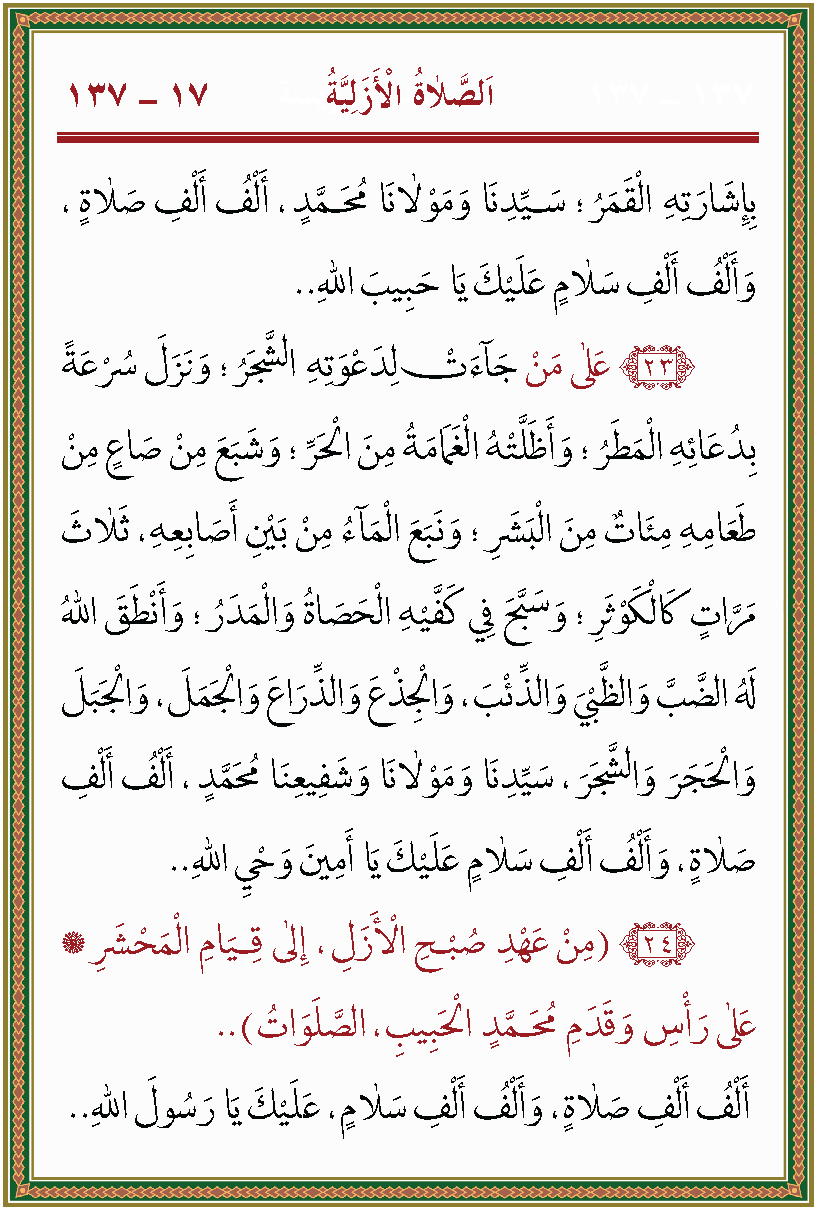 اَلصَّلَاةُ الْأَزَلِيَّةُ ١٧ – ١٣٧
بِإِشَارَتِهِ الْقَمَرُ ؛ سَيِّدِنَا وَمَوْلَانَا مُحَمَّدٍ ، أَلْفُ أَلْفِ صَلَاةٍ ،
وَأَلْفُ أَلْفِ سَلَامٍ عَلَيْكَ يَا حَبِيبَ اللهِ..
﴿٢٣﴾ عَلٰى مَنْ جَآءَتْ لِدَعْوَتِهِ الشَّجَرُ ؛ وَنَزَلَ سُرْعَةً
بِدُعَائِهِ الْمَطَرُ ؛ وَأَظَلَّتْهُ الْغَمَامَةُ مِنَ الْحَرِّ ؛ وَشَبَعَ مِنْ صَاعٍ مِنْ
طَعَامِهِ مِئَاتٌ مِنَ الْبَشَرِ ؛ وَنَبَعَ الْمَآءُ مِنْ بَيْنِ أَصَابِعِهِ ، ثَلَاثَ
مَرَّاتٍ كَالْكَوْثَرِ ؛ وَسَبَّحَ فِي كَفَّيْهِ الْحَصَاةُ وَالْمَدَرُ ؛ وَأَنْطَقَ اللهُ
لَهُ الضَّبَّ وَالظَّبْيَ وَالذِّئْبَ ، وَالْجِذْعَ وَالذِّرَاعَ وَالْجَمَلَ ، وَالْجَبَلَ
وَالْحَجَرَ وَالشَّجَرَ ، سَيِّدِنَا وَمَوْلَانَا وَشَفِيعِنَا مُحَمَّدٍ ، أَلْفُ أَلْفِ
صَلَاةٍ ، وَأَلْفُ أَلْفِ سَلَامٍ عَلَيْكَ يَا أَمِينَ وَحْيِ اللهِ..
﴿٢٤﴾ (مِنْ عَهْدِ صُبْحِ الْأَزَلِ ، إِلٰى قِيَامِ الْمَحْشَرِ ۞
عَلٰى رَأْسِ وَقَدَمِ مُحَمَّدٍ الْحَبِيبِ ، الصَّلَوَاتُ)..
أَلْفُ أَلْفِ صَلَاةٍ ، وَأَلْفُ أَلْفِ سَلَامٍ ، عَلَيْكَ يَا رَسُولَ اللهِ..